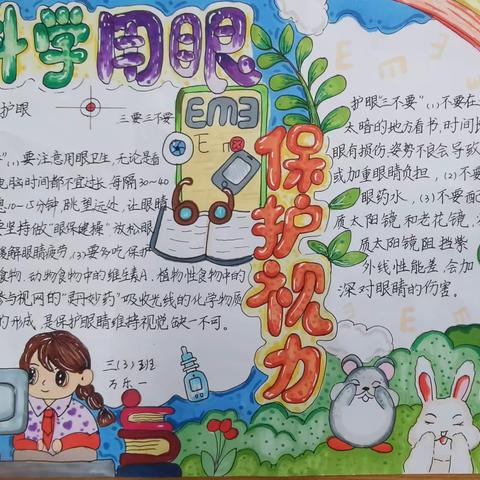 科学用眼
护眼
三要三不要
E m 3
E
"(1)要注意用眼卫生,无论是看
电脑,时间都不宜过长,每隔30~40
息10~15分钟,眺望远处,让眼睛
要坚持做"眼保健操"放松眼
缓解眼睛疲劳,(3)要多吃保护
食物,动物食物中的维生素A,植物性食物中的
参与视网的"灵丹妙药"吸收光线的化学物质
的形成,是保护眼睛维持视觉缺一不可。
三(3)班
保护视力
护眼"三不要"(1)不要在
太暗的地方看书,时间长
眼有损伤,姿势不良会导致
或加重眼睛负担,(2)不要
眼药水,(3)不要配
质太阳镜和老花镜,
质太阳镜阻挡紫
外线性能差,会加
深对眼睛的伤害。